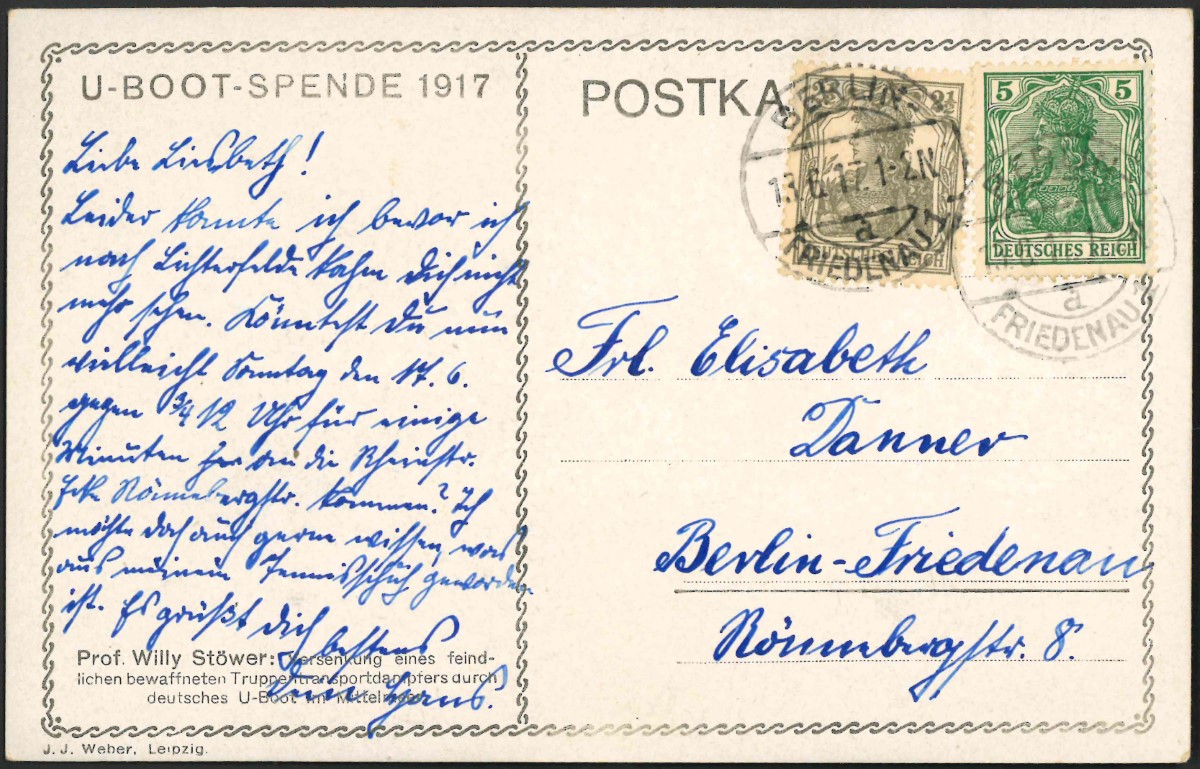 U-BOOT-SPENDE 1917
Liebe Liesbeth!
Leider konnte ich bevor ich
nach Lichterfelde kahm Dich nicht
mehr sehen. Könntest Du nun
vielleicht Sonntag den 17. 6.
gegen 3/4 12 Uhr für einige
Minuten an die Rheinstr.
Ecke Rönnebergstr. kommen? Ich
möchte doch auch gerne wissen, was
aus meinem Tennisschuh geworden
ist. Es grüßt Dich
bestens
Dein Hans.
Prof. Willy Stöwer: Versenkung eines feind-
lichen bewaffneten Truppentransportdampfers durch
deutsches U-Boot im Mittelmeer
J. J. Weber, Leipzig.
POSTKA
BERLIN-
13.6.17.1-2N
a
FRIEDENAU 1
2½
DEUTSCHES REICH
5 5
DEUTSCHES REICH
a
FRIEDENAU
Frl. Elisabeth
Danner
Berlin-Friedenau
Rönnebergstr. 8.